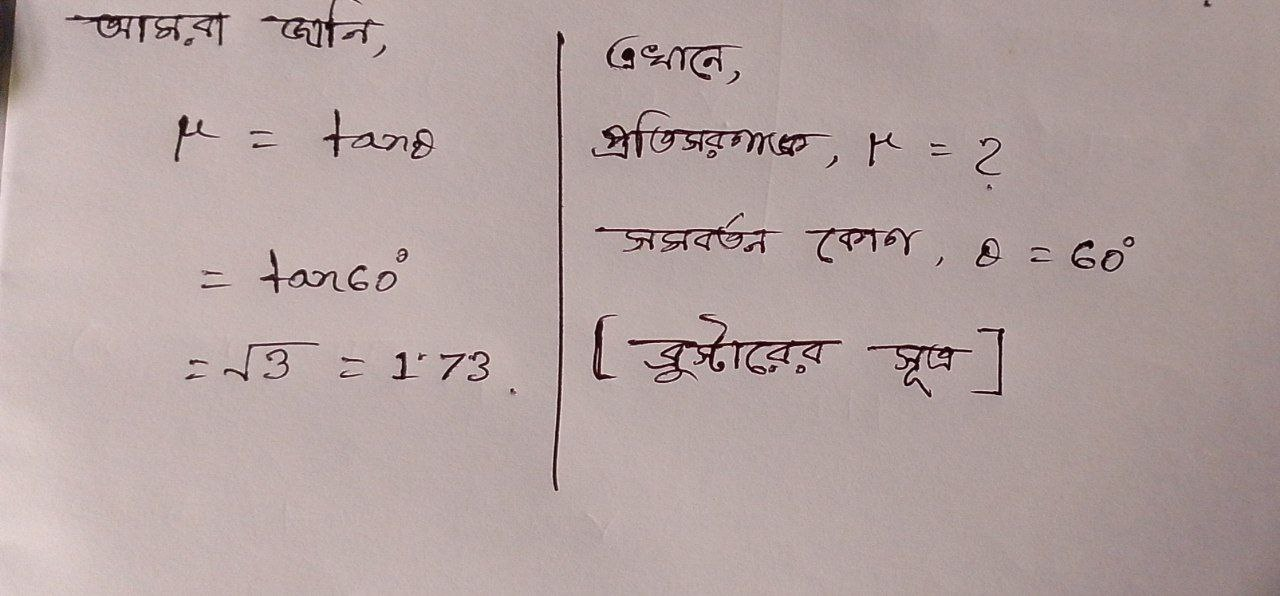 আমরা জানি,
μ = tanθ
= tan60°
= √3 = 1.73.
এখানে,
প্রতিসরণাঙ্ক, μ = ?
সমবর্তন কোণ, θ = 60°
[ ব্রুস্টারের সূত্র ]